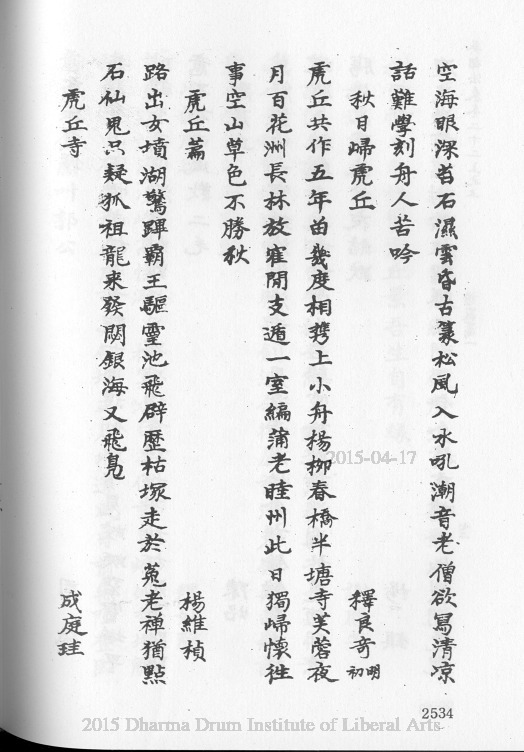 空海眼深苔石濕雲昏古篆松風入水吼潮音老僧欲寫清凉
話難學刻舟人苦吟
秋日歸虎丘 釋良奇明初
虎丘共作五年留幾度相携上小舟楊柳春橋半塘寺芙蓉夜
月百花洲長林放寉閒支遁一室編蒲老睦州此日獨歸懷徃
事空山草色不勝秋
虎丘篇 楊維楨
路出女墳湖驚蹕霸王驅靈池飛辟歷枯塚走於菟老禅猶點
石仙鬼只疑狐祖龍来發闕銀海又飛鳧
虎丘寺 成庭珪
2534
2015-04-17
2015 Dharma Drum Institute of Liberal Arts